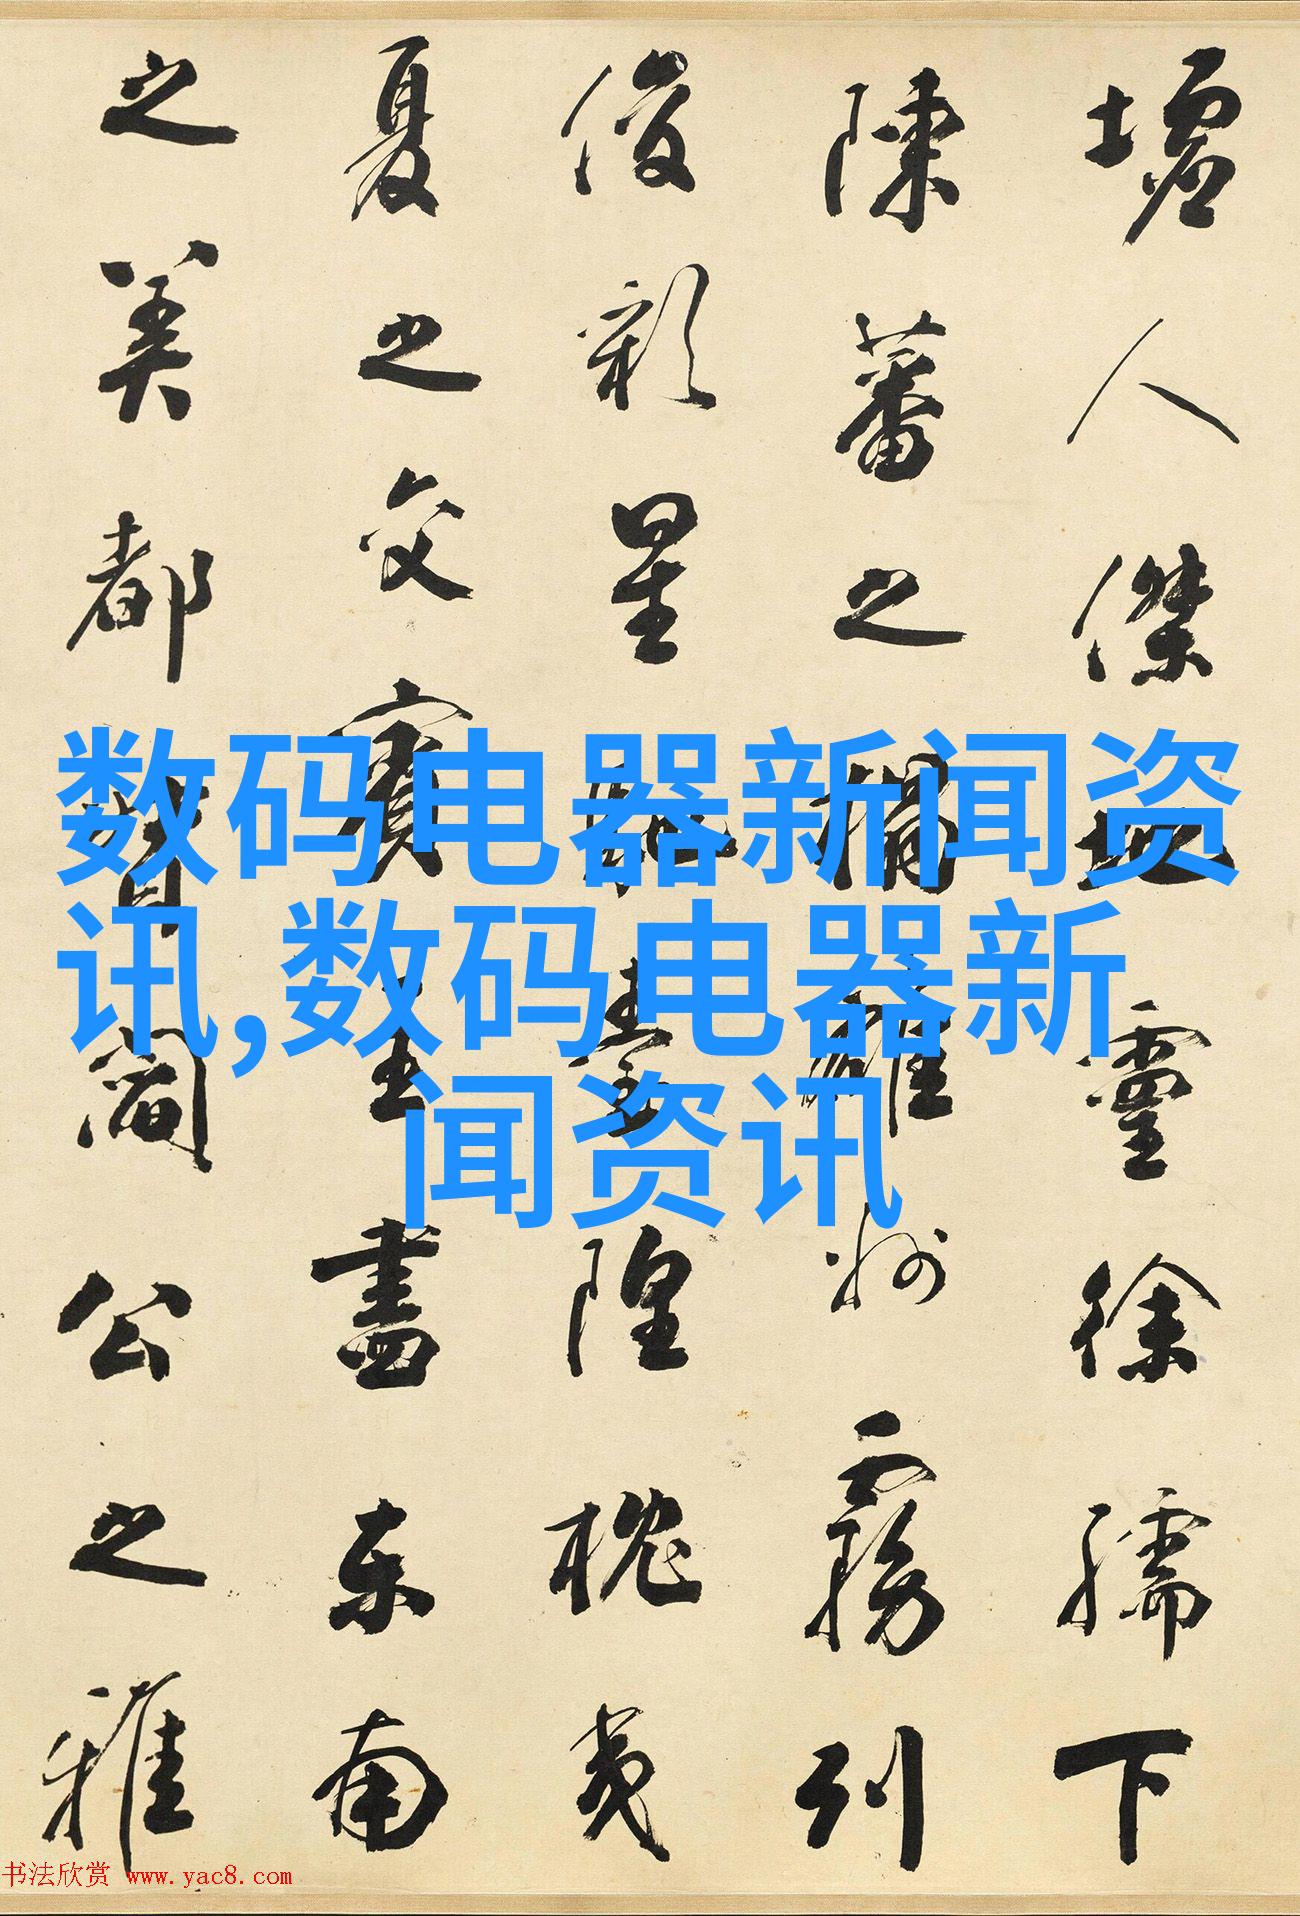 墟人傑地靈徐孺下
陳蕃之榻雄州霧列
俊彩星馳臺隍枕夷
夏之交賓主盡東南
之美都督閻公之雅
数码电器新闻资
讯,数码电器新
闻资讯
书法欣赏 www.yac8.com